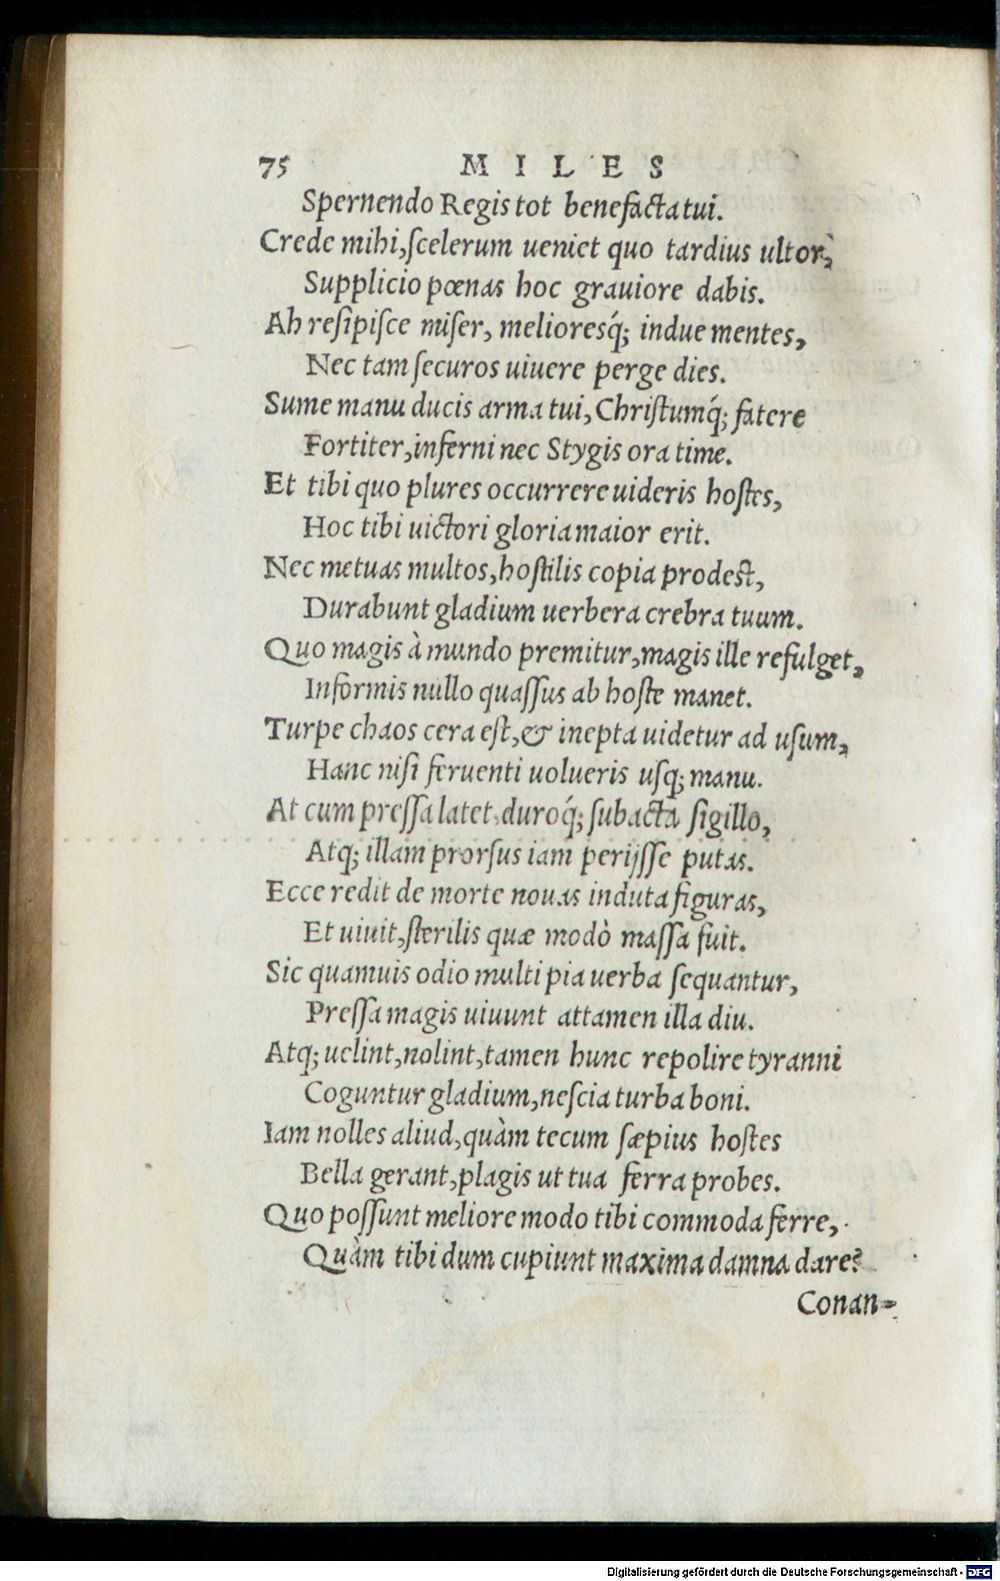 75 MILES
Spernendo Regis tot benefacta tui.
Crede mihi, ſcelerum ueniet quo tardius ultor,
Supplicio pœnas hoc grauiore dabis.
Ah reſipiſce miſer, melioresq́; indue mentes,
Nec tam ſecuros uiuere perge dies.
Sume manu ducis arma tui, Chriſtumq́; fatere
Fortiter, inferni nec Stygis ora time.
Et tibi quo plures occurrere uideris hoſtes,
Hoc tibi uictori gloria maior erit.
Nec metuas multos, hoſtilis copia prodeſt,
Durabunt gladium uerbera crebra tuum.
Quo magis à mundo premitur, magis ille refulget,
Informis nullo quaſſus ab hoſte manet.
Turpe chaos cera eſt, & inepta uidetur ad uſum,
Hanc niſi feruenti uolueris uſq; manu.
At cum preſſa latet, duroq́; ſubacta ſigillo,
Atq; illam prorſus iam perijſſe putas.
Ecce redit de morte nouas induta figuras,
Et uiuit, ſterilis quæ modò maſſa fuit.
Sic quamuis odio multi pia uerba ſequantur,
Preſſa magis uiuunt attamen illa diu.
Atq; uelint, nolint, tamen hunc repolire tyranni
Coguntur gladium, neſcia turba boni.
Iam nolles aliud, quàm tecum ſæpius hoſtes
Bella gerant, plagis ut tua ferra probes.
Quo poſſunt meliore modo tibi commoda ferre,
Quàm tibi dum cupiunt maxima damna dare?
Conan-
Digitalisierung gefördert durch die Deutsche Forschungsgemeinschaft - DFG